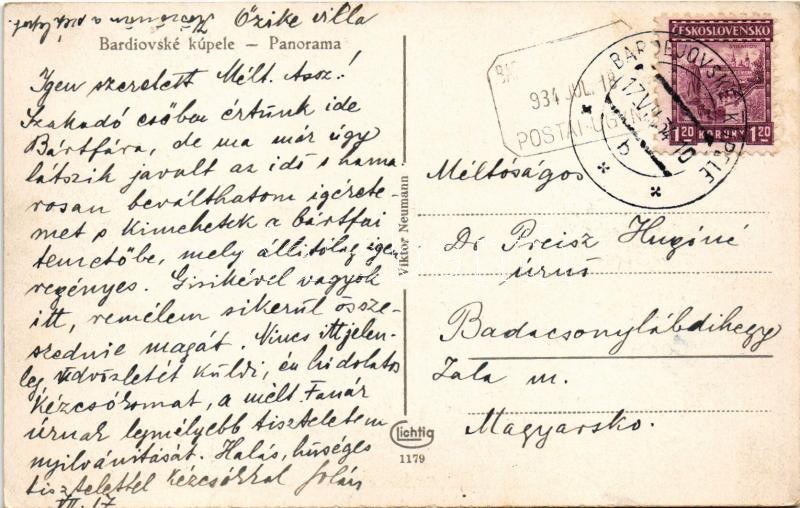 Őzike villa
Köszönöm a szép lapot.
Bardiovské kúpele – Panorama
Igen szeretett Mélt. Assz.!
Szakadó esőben értünk ide
Bártfára, de ma már úgy
látszik javult az idő s hama
rosan beválthatom igérete-
met s kimehetek a bártfai
temetőbe, mely állítólag igen
regényes. Gizikével vagyok
itt, remélem sikerül össze-
szednie magát. Nincs itt jelen-
leg üdvözletét küldi, én hódolatos
kézcsókomat, a mélt. Tanár
úrnak legmélyebb tiszteletem
nyilvánítását. Hálás, hűséges
tisztelettel kézcsókkal
VII. 17
Viktor Neumann
Lichtig
1179
ČESKOSLOVENSKO
1.20 KORUNY 1.20
BARDEJOVSKÉ KÚPELE
934 JUL. 18
POSTAI ÜGYN.
Méltóságos
Dr Preisz Hugóné
úrnő
Badacsonylábdihegy
Zala m.
Magyarsko.